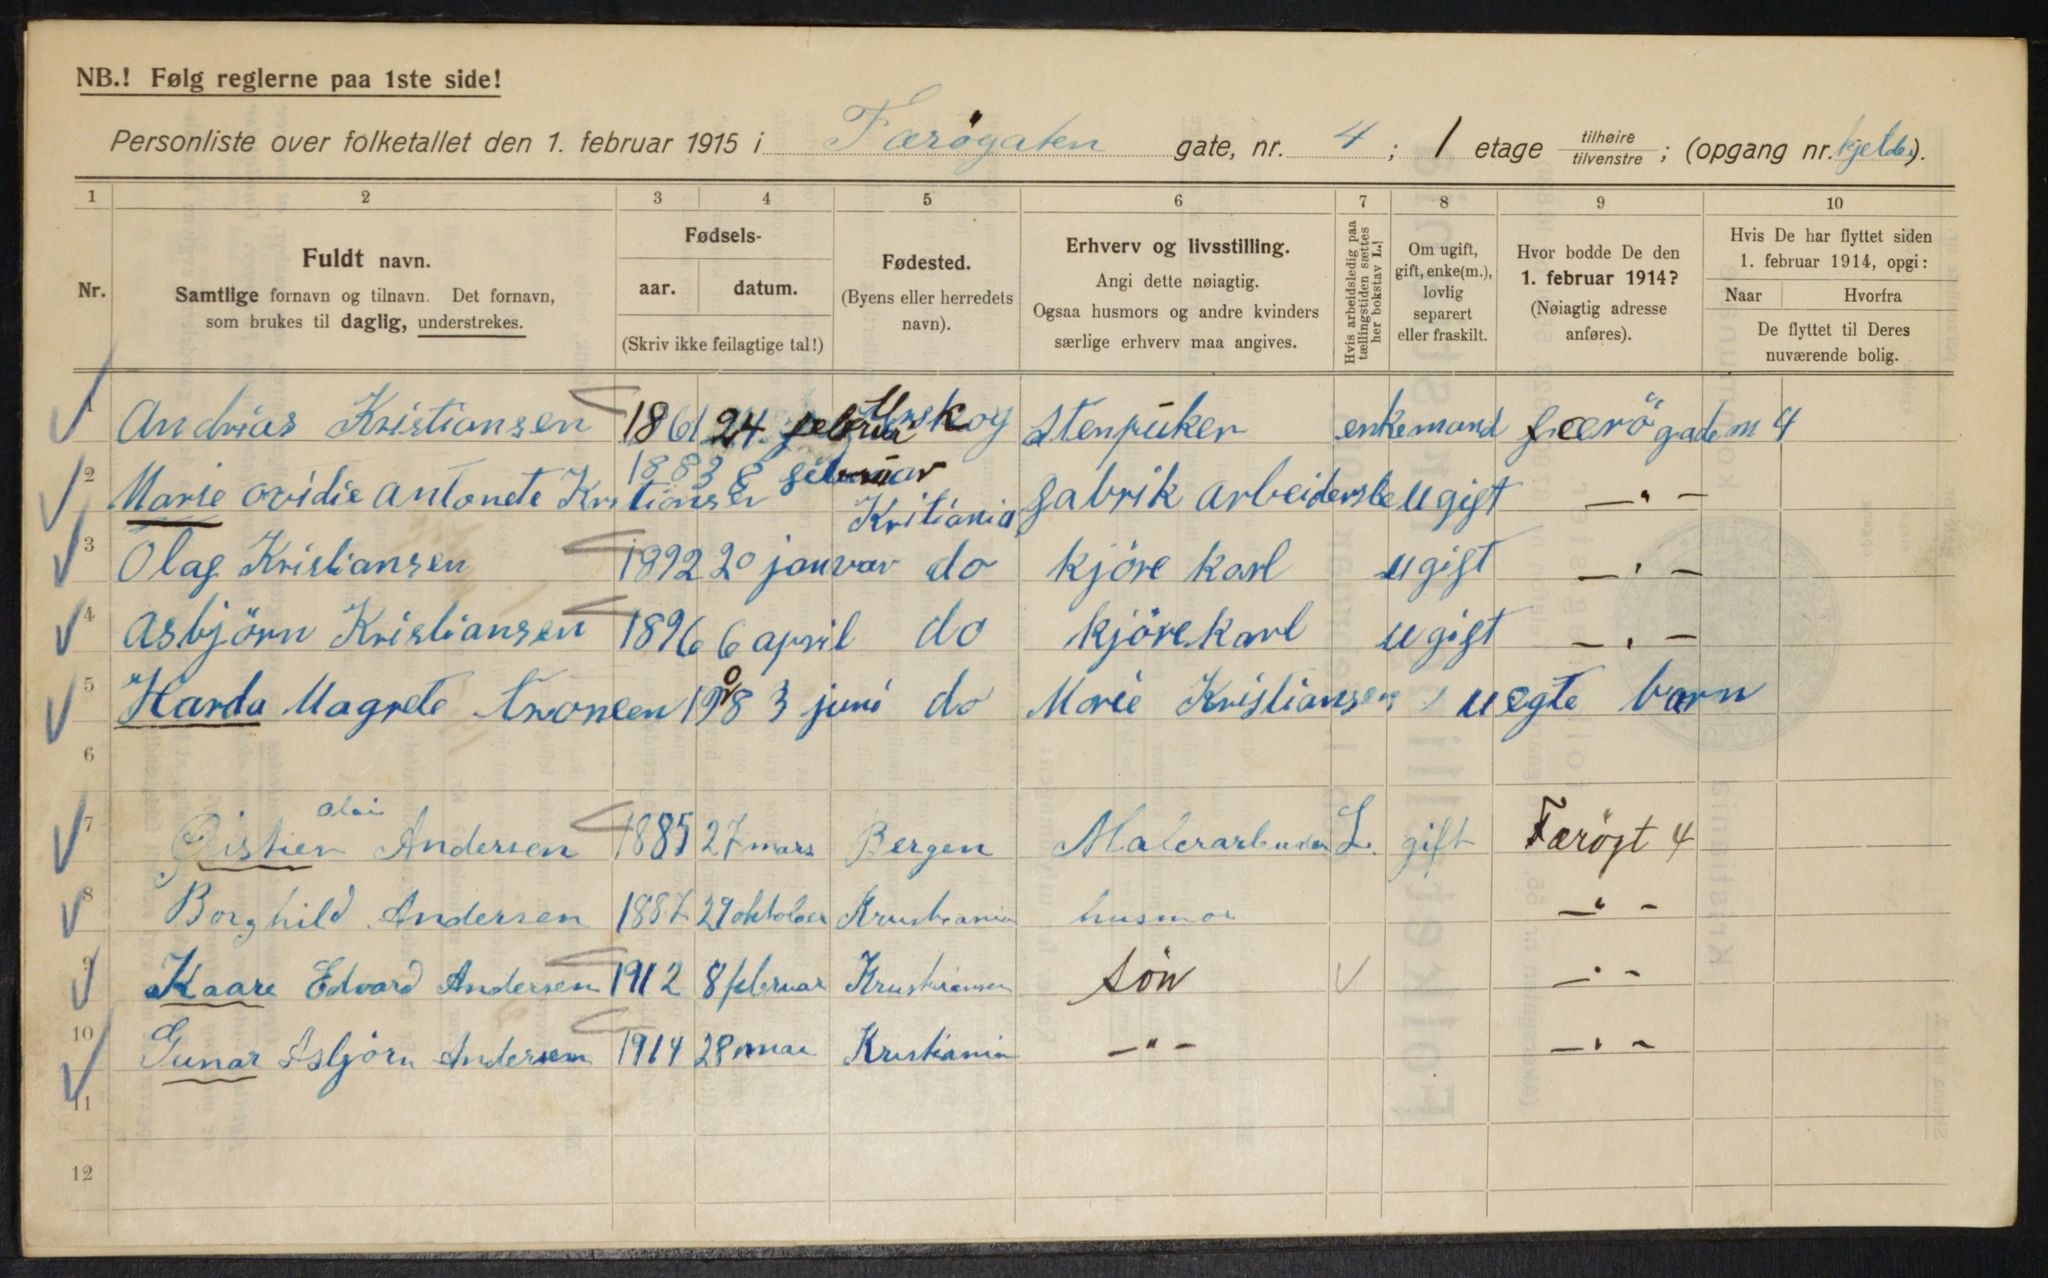 NB.! Følg reglerne paa 1ste side!
Personliste over folketallet den 1. februar 1915 i Færøgaten gate, nr. 4; 1 etage tilhøire/tilvenstre; (opgang nr. kjelder).
1 2 3 4 5 6 7 8 9 10
Nr.
Fuldt navn.
Samtlige fornavn og tilnavn. Det fornavn,
som brukes til daglig, understrekes.
Fødsels-
aar. datum.
(Skriv ikke feilagtige tal!)
Fødested.
(Byens eller herredets
navn).
Erhverv og livsstilling.
Angi dette nøiagtig.
Ogsaa husmors og andre kvinders
særlige erhverv maa angives.
Hvis arbeidsledig paa
tællingstiden sættes
her bokstav L.
Om ugift,
gift, enke(m.),
lovlig
separert
eller fraskilt.
Hvor bodde De den
1. februar 1914?
(Nøiagtig adresse
anføres).
Hvis De har flyttet siden
1. februar 1914, opgi:
Naar Hvorfra
De flyttet til Deres
nuværende bolig.
1 Andrias Kristiansen 1861 24. februar Urskog Stenpüker enkemand færö gade m 4
2 Marie ovidie antonete Kristianser 1883 8 februar Kritiania fabrik arbeiderske ugift — " —
3 Olaf Kristiansen 1892 20 januar do kjöre karl ugift — " —
4 asbjörn Kristiansen 1896 6 april do kjöre karl ugift — " —
5 Harda Magrete 1908 3 juni do Marie Kristiansens uegte barn
6
7 Olai Andersen 1885 27 mars Bergen Malerarbeider L. gift Færøgt 4
8 Borghild Andersen 1887 29 oktober Kristiania husmor — " —
9 Kaare Edvard Andersen 1912 8 februar sön — " —
10 Gunar Asbjørn Andersen 1914 28 mai Kristiania — " — — " —
11
12